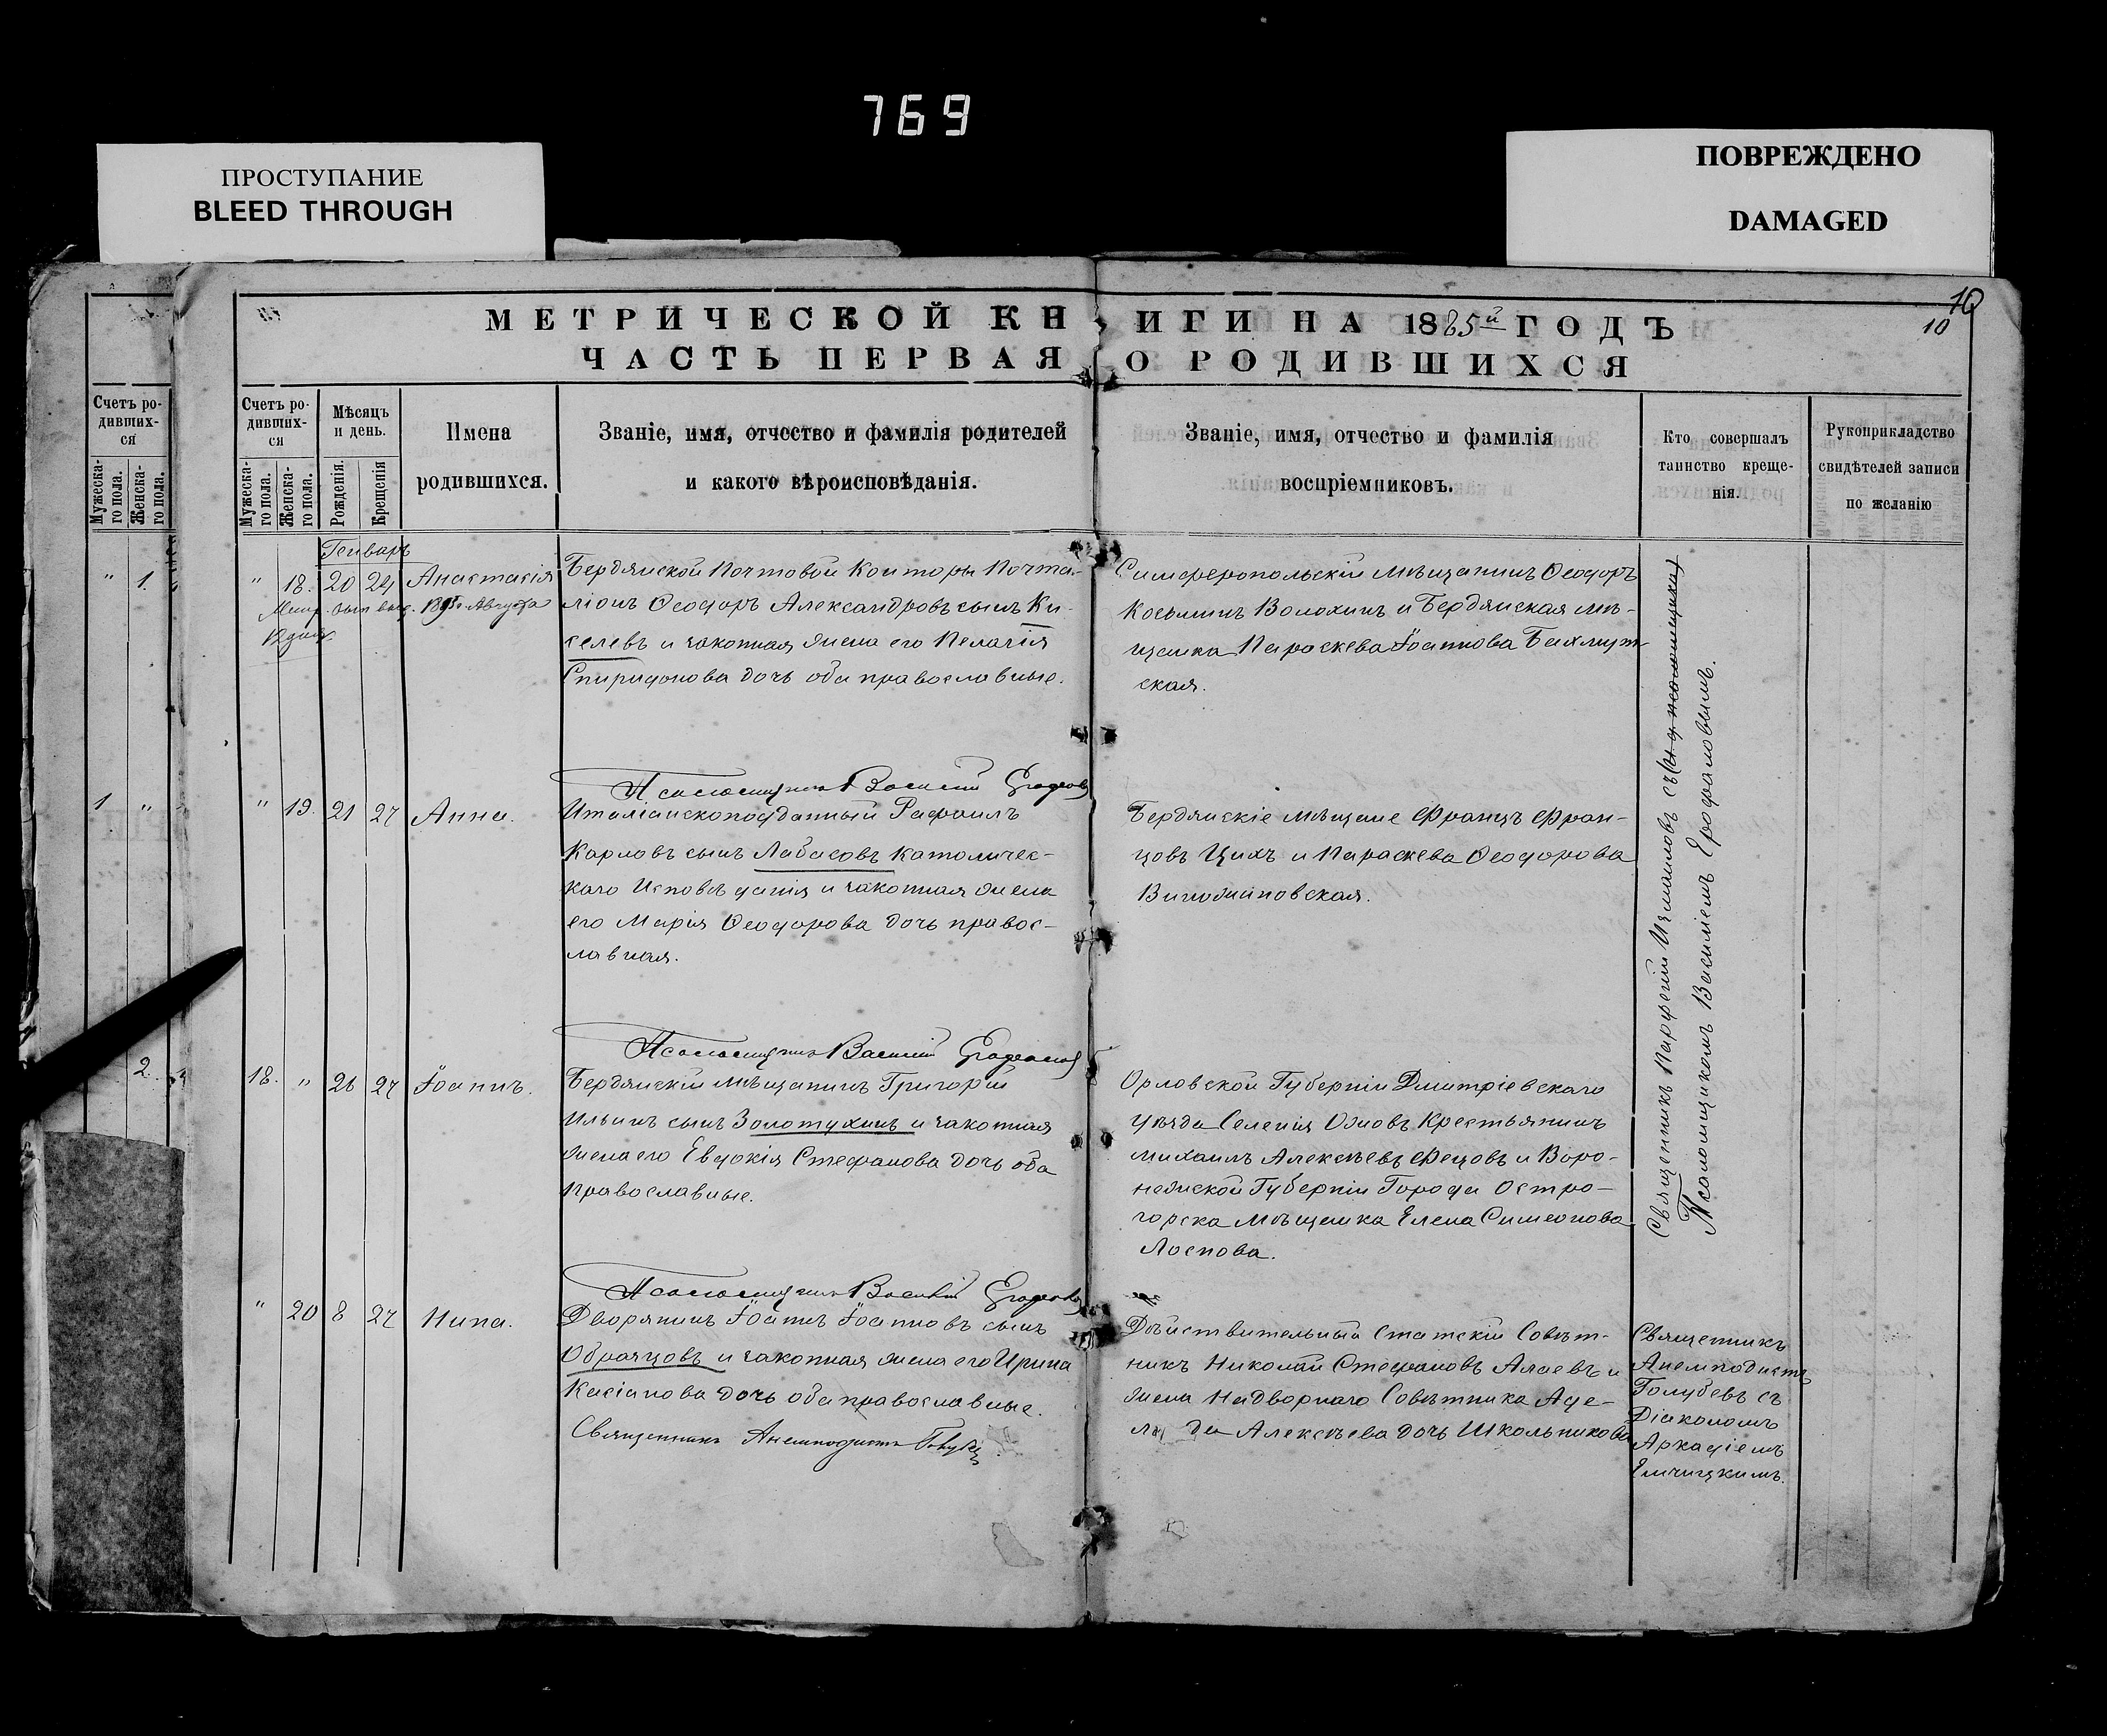 769
ПРОСТУПАНИЕ
BLEED THROUGH
ПОВРЕЖДЕНО
DAMAGED
10
10
МЕТРИЧЕСКОЙ КНИГИ НА 1885й ГОДЪ
ЧАСТЬ ПЕРВАЯ О РОДИВШИХСЯ
Счетъ ро-
дивших-
ся
Мужеска-
го пола.
Женска-
го пола.
" 1.
1 "
2
Счетъ ро-
дивших-
ся
Мужеска-
го пола.
Женска-
го пола.
Мѣсяцъ
и день.
Рожденія.
Крещенія
Имена
родившихся.
Званіе, имя, отчество и фамилія родителей
и какого вѣроисповѣданія.
Званіе, имя, отчество и фамилія
воспріемниковъ.
Кто совершалъ
таинство креще-
нія.
Рукоприкладство
свидѣтелей записи
по желанію
Генварь
" 18. 20 24 Анастасія
Метр. вып. выд. Августа
12 дня
Бердянской Почтовой Конторы Почта-
ліонъ Ѳеодоръ Александровъ сынъ Ки-
селевъ и законная жена его Пелагія
Спиридонова дочь оба православные.
Симферопольскій мѣщанинъ Ѳеодоръ
Косьминъ Волохинъ и Бердянская мѣ-
щанка Параскева Іоаннова Бахмут-
ская.
Псаломщикъ Василій
" 19. 21 27 Анна.
Италіанскоподданный Рафаилъ
Карловъ сынъ Лабасовъ католичес-
каго Исповѣданія и законная жена
его Марія Ѳеодорова дочь правос-
лавная.
Бердянскіе мѣщане Францъ Фран-
цовъ Цихъ и Параскева Ѳеодорова
Виножиновская.
Псаломщикъ Василій
18. " 26 27 Іоаннъ.
Бердянскій мѣщанинъ Григорій
Ильинъ сынъ Золотухинъ и законная
жена его Евдокія Стефанова дочь оба
православные.
Орловской Губерніи Дмитріевскаго
уѣзда Селенія Ожовъ Крестьянинъ
Михаилъ Алексѣевъ Фецовъ и Воро-
нежской Губерніи Города Остро-
горска мѣщанка Елена Симеонова
Лоснова.
Священникъ Парфеній Измаиловъ съ
Псаломщикомъ Василіемъ Ерофаловымъ.
Псаломщикъ Василій
" 20 8 27 Нина.
Дворянинъ Іоаннъ Іоанновъ сынъ
Образцовъ и законная жена его Ирина
Касіанова дочь оба православные.
Священникъ Анемподистъ Голубевъ
Дѣйствительный Статскій Совѣт-
никъ Николай Стефановъ Алаевъ и
жена Надворнаго Совѣтника Аде-
лаида Алексѣева дочь Школьникова
Священникъ
Анемподистъ
Голубевъ съ
Діакономъ
Аркадіемъ